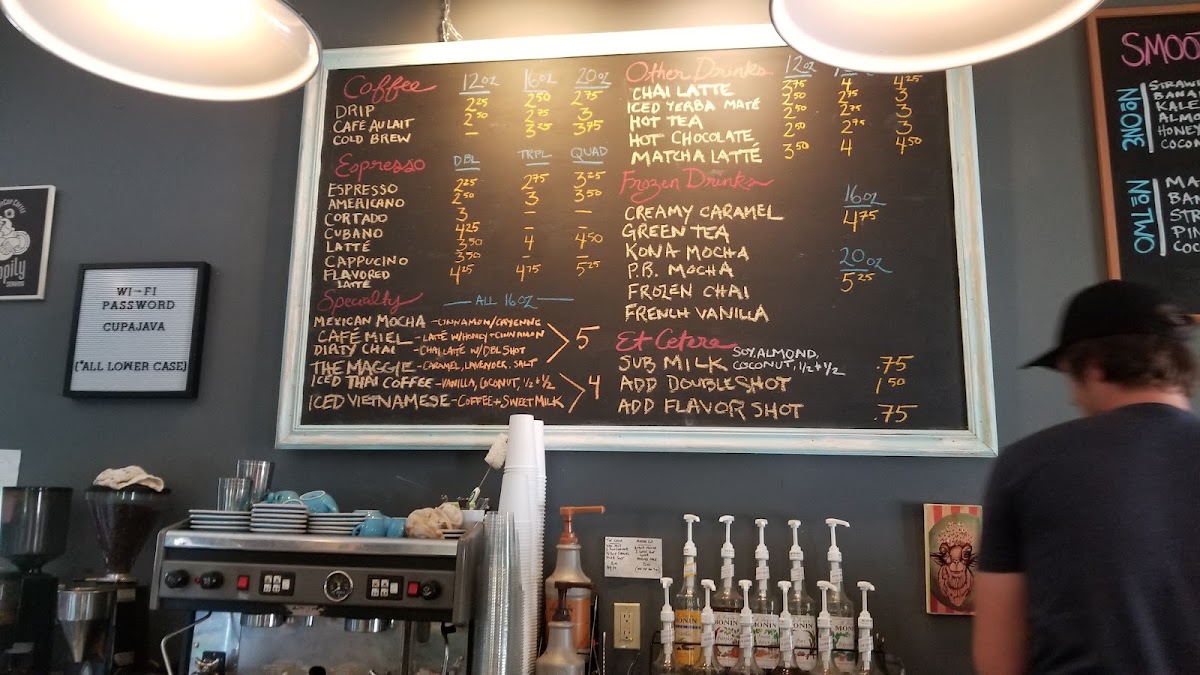 Coffee 12oz 16oz 20oz
DRIP 2.25 2.50 2.75
CAFÉ AU LAIT 2.50 2.75 3
COLD BREW — 3.25 3.75
Espresso DBL TRPL QUAD
ESPRESSO 2.25 2.75 3.25
AMERICANO 2.50 3 3.50
CORTADO 3 — —
CUBANO 4.25 — —
LATTÉ 3.50 4 4.50
CAPPUCINO 3.50 — —
FLAVORED LATTÉ 4.25 4.75 5.25
Specialty — ALL 16oz —
MEXICAN MOCHA - CINNAMON/CAYENNE
CAFÉ MIEL - LATTE W/HONEY + CINNAMON 5
DIRTY CHAI - CHAI LATE W/DBL SHOT
THE MAGGIE - CARAMEL, LAVENDER, SALT
ICED THAI COFFEE - VANILLA, COCONUT, 1/2 + 1/2 4
ICED VIETNAMESE - COFFEE + SWEET MILK
Other Drinks 12oz
CHAI LATTE 3.75 4 4.25
ICED YERBA MATÉ 2.50 2.75 3
HOT TEA 2.50 2.75 3
HOT CHOCOLATE 2.50 2.75 3
MATCHA LATTÉ 3.50 4 4.50
Frozen Drinks
16oz
CREAMY CARAMEL 4.75
GREEN TEA
KONA MOCHA
20oz
P.B. MOCHA 5.25
FROZEN CHAI
FRENCH VANILLA
Et Cetera
SUB MILK SOY, ALMOND, COCONUT, 1/2 + 1/2 .75
ADD DOUBLE SHOT 1.50
ADD FLAVOR SHOT .75
WI-FI
PASSWORD
CUPAJAVA
(*ALL LOWER CASE)
SMOO
NŏONE
STRAW
BANA
KALE
ALMO
HONEY
COCON
NŏTWO
MA
BA
STR
PIN
COC
MONIN